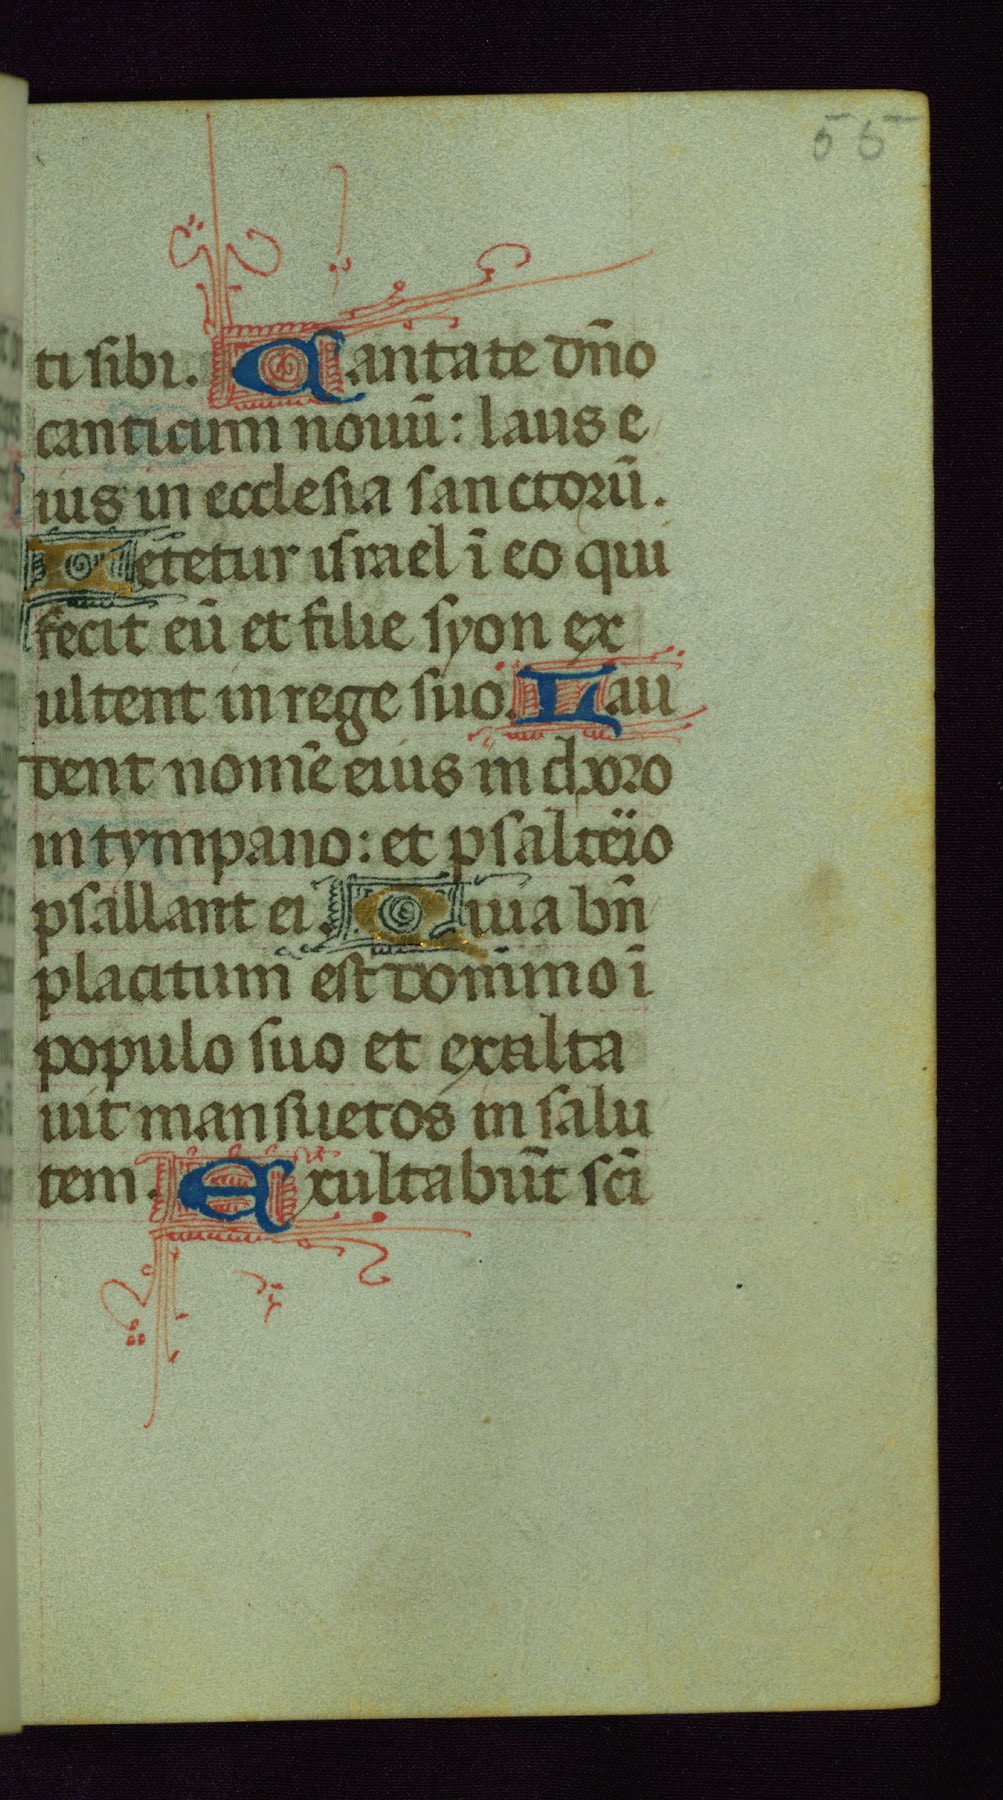 55
ti sibi. Cantate dn̄o
canticum nouū: laus e
ius in ecclesia sanctorū.
Letetur israel ī eo qui
fecit eū et filie syon ex
ultent in rege suo. Lau
dent nomē eius in choro
in tympano: et psalteïo
psallant ei. Quia bn̄
placitum est domino ī
populo suo et exalta
uit mansuetos in salu
tem. Exultabūt sc̄i